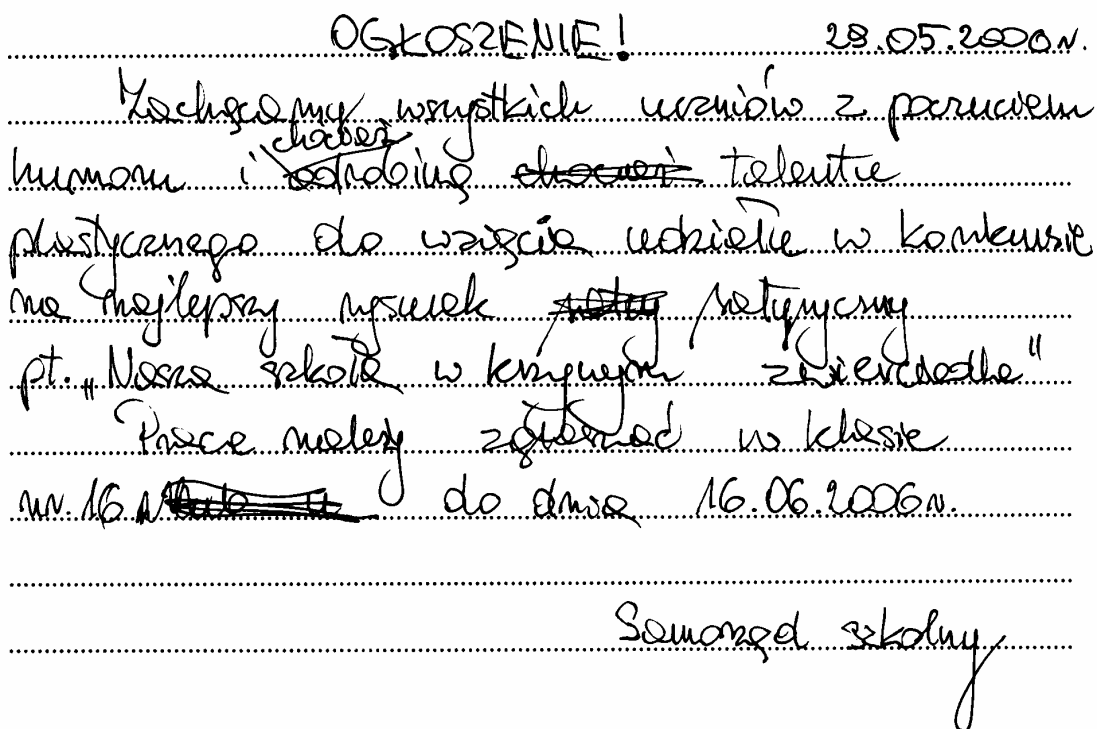 OGŁOSZENIE! 29.05.2006r.
Zachęcamy wszystkich uczniów z poczuciem
humoru i chociaż odrobiną talentu
plastycznego do wzięcia udziału w konkursie
na najlepszy rysunek satyryczny
pt. „Nasza szkoła w krzywym zwierciadle"
Prace należy zgłaszać w klasie
nr. 16 do dnia 16.06.2006r.
Samorząd szkolny